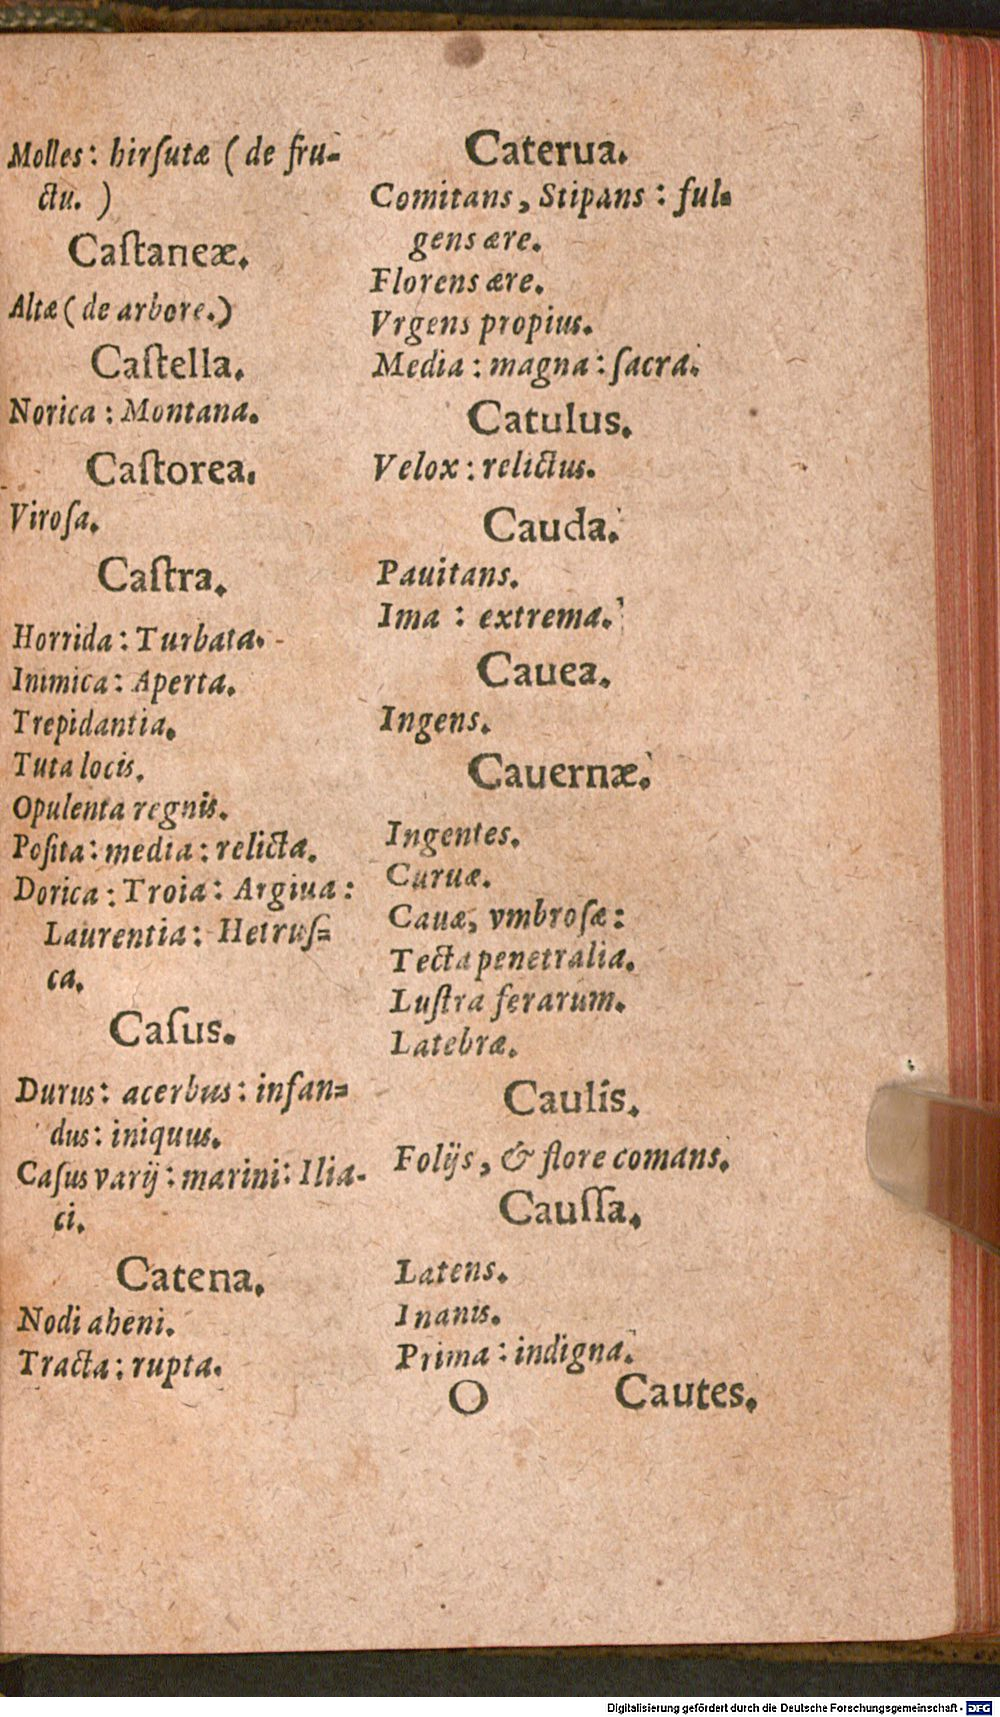 Molles: hirſutæ (de fru-
ctu. )
Caſtaneæ.
Altæ (de arbore.)
Caſtella.
Norica: Montana.
Caſtorea.
Viroſa.
Caſtra.
Horrida: Turbata.
Inimica: Aperta.
Trepidantia.
Tuta locis.
Opulenta regnis.
Poſita: media: relicta.
Dorica: Troia: Argiua:
Laurentia: Hetruſ-
ca.
Caſus.
Durus: acerbus: infan-
dus: iniquus.
Caſus varij: marini: Ilia-
ci.
Catena.
Nodi aheni.
Tracta: rupta.
Caterua.
Comitans, Stipans: ful-
gens ære.
Florens ære.
Vrgens propius.
Media: magna: ſacra.
Catulus.
Velox: relictus.
Cauda.
Pauitans.
Ima: extrema.
Cauea.
Ingens.
Cauernæ.
Ingentes.
Curuæ.
Cauæ, vmbroſæ:
Tecta penetralia.
Luſtra ferarum.
Latebræ.
Caulis.
Folijs, & flore comans.
Cauſſa.
Latens.
Inanis.
Prima: indigna.
O Cautes.
Digitalisierung gefördert durch die Deutsche Forschungsgemeinschaft - DFG